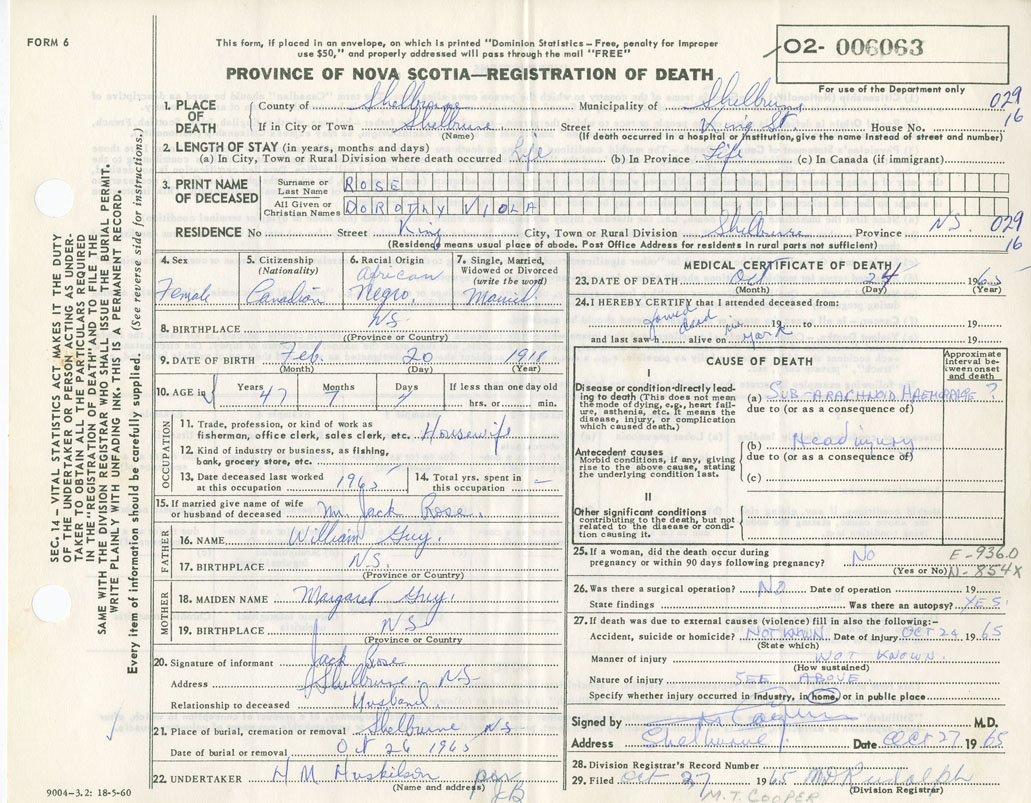 FORM 6
This form, if placed in an envelope, on which is printed "Dominion Statistics – Free, penalty for improper
use $50," and properly addressed will pass through the mail "FREE"
02- 006063
PROVINCE OF NOVA SCOTIA—REGISTRATION OF DEATH
For use of the Department only
029
16
1. PLACE OF DEATH County of Shelburne Municipality of Shelburne
If in City or Town Shelburne Street King St. House No.
(Name) (If death occurred in a hospital or institution, give the name instead of street and number)
2. LENGTH OF STAY (in years, months and days)
(a) In City, Town or Rural Division where death occurred Life (b) In Province Life (c) In Canada (if immigrant)
3. PRINT NAME OF DECEASED Surname or Last Name ROSE
All Given or Christian Names DOROTHY VIOLA
RESIDENCE No Street King City, Town or Rural Division Shelburne Province N.S. 029
(Residence means usual place of abode. Post Office Address for residents in rural parts not sufficient) 16
4. Sex Female
5. Citizenship (Nationality) Canadian
6. Racial Origin African Negro.
7. Single, Married, Widowed or Divorced (write the word) Married
8. BIRTHPLACE N.S.
(Province or Country)
9. DATE OF BIRTH Feb. 20 1918
(Month) (Day) (Year)
10. AGE in Years 47 Months 7 Days 4 If less than one day old
hrs. or min.
OCCUPATION
11. Trade, profession or kind of work as
fisherman, office clerk, sales clerk, etc. Housewife
12. Kind of industry or business, as fishing,
bank, grocery store, etc.
13. Date deceased last worked
at this occupation 1965
14. Total yrs. spent in
this occupation –
15. If married give name of wife
or husband of deceased Mr. Jack Rose.
FATHER
16. NAME William Guy.
17. BIRTHPLACE N.S.
(Province or Country)
MOTHER
18. MAIDEN NAME Margaret Guy.
19. BIRTHPLACE N.S
(Province or Country
20. Signature of informant Jack Rose
Address Shelburne. N.S
Relationship to deceased Husband.
21. Place of burial, cremation or removal Shelburne N.S
Date of burial or removal Oct 26 1965
22. UNDERTAKER H M Huskilson
(Name and address)
9004–3.2: 18-5-60
MEDICAL CERTIFICATE OF DEATH
23. DATE OF DEATH Oct 24 1965
(Month) (Day) (Year)
24. I HEREBY CERTIFY that I attended deceased from:
found dead in yark
19 to 19
and last saw h alive on 19
CAUSE OF DEATH
Approximate interval between onset and death
I
Disease or condition directly leading to death (This does not mean the mode of dying, e.g., heart failure, asthenia, etc. It means the disease, injury, or complication which caused death.)
(a) SUB-ARACHNOID HAEMORRAGE ?
due to (or as a consequence of)
Antecedent causes
Morbid conditions, if any, giving rise to the above cause, stating the underlying condition last.
(b) Head injury
due to (or as a consequence of)
(c)
II
Other significant conditions
contributing to the death, but not related to the disease or condition causing it.
25. If a woman, did the death occur during
pregnancy or within 90 days following pregnancy? No
(Yes or No)
E-936.0
N-854X
26. Was there a surgical operation? NO Date of operation 19
State findings Was there an autopsy? YES.
27. If death was due to external causes (violence) fill in also the following:–
Accident, suicide or homicide? NOT KNOWN Date of injury OCT 24 1965
(State which)
Manner of injury NOT KNOWN.
(How sustained)
Nature of injury SEE ABOVE.
Specify whether injury occurred in industry, in home, or in public place
Signed by M.D.
Address Shelburne Date OCT 27 1965
28. Division Registrar's Record Number
29. Filed Oct 27 1965 MD Rudolph
(Division Registrar)
M.T. COOPER
SEC. 14 – VITAL STATISTICS ACT MAKES IT THE DUTY
OF THE UNDERTAKER OR PERSON ACTING AS UNDER-
TAKER TO OBTAIN ALL THE PARTICULARS REQUIRED
IN THE "REGISTRATION OF DEATH" AND TO FILE THE
SAME WITH THE DIVISION REGISTRAR WHO SHALL ISSUE THE BURIAL PERMIT.
WRITE PLAINLY WITH UNFADING INK. THIS IS A PERMANENT RECORD.
Every item of information should be carefully supplied. (See reverse side for instructions.)